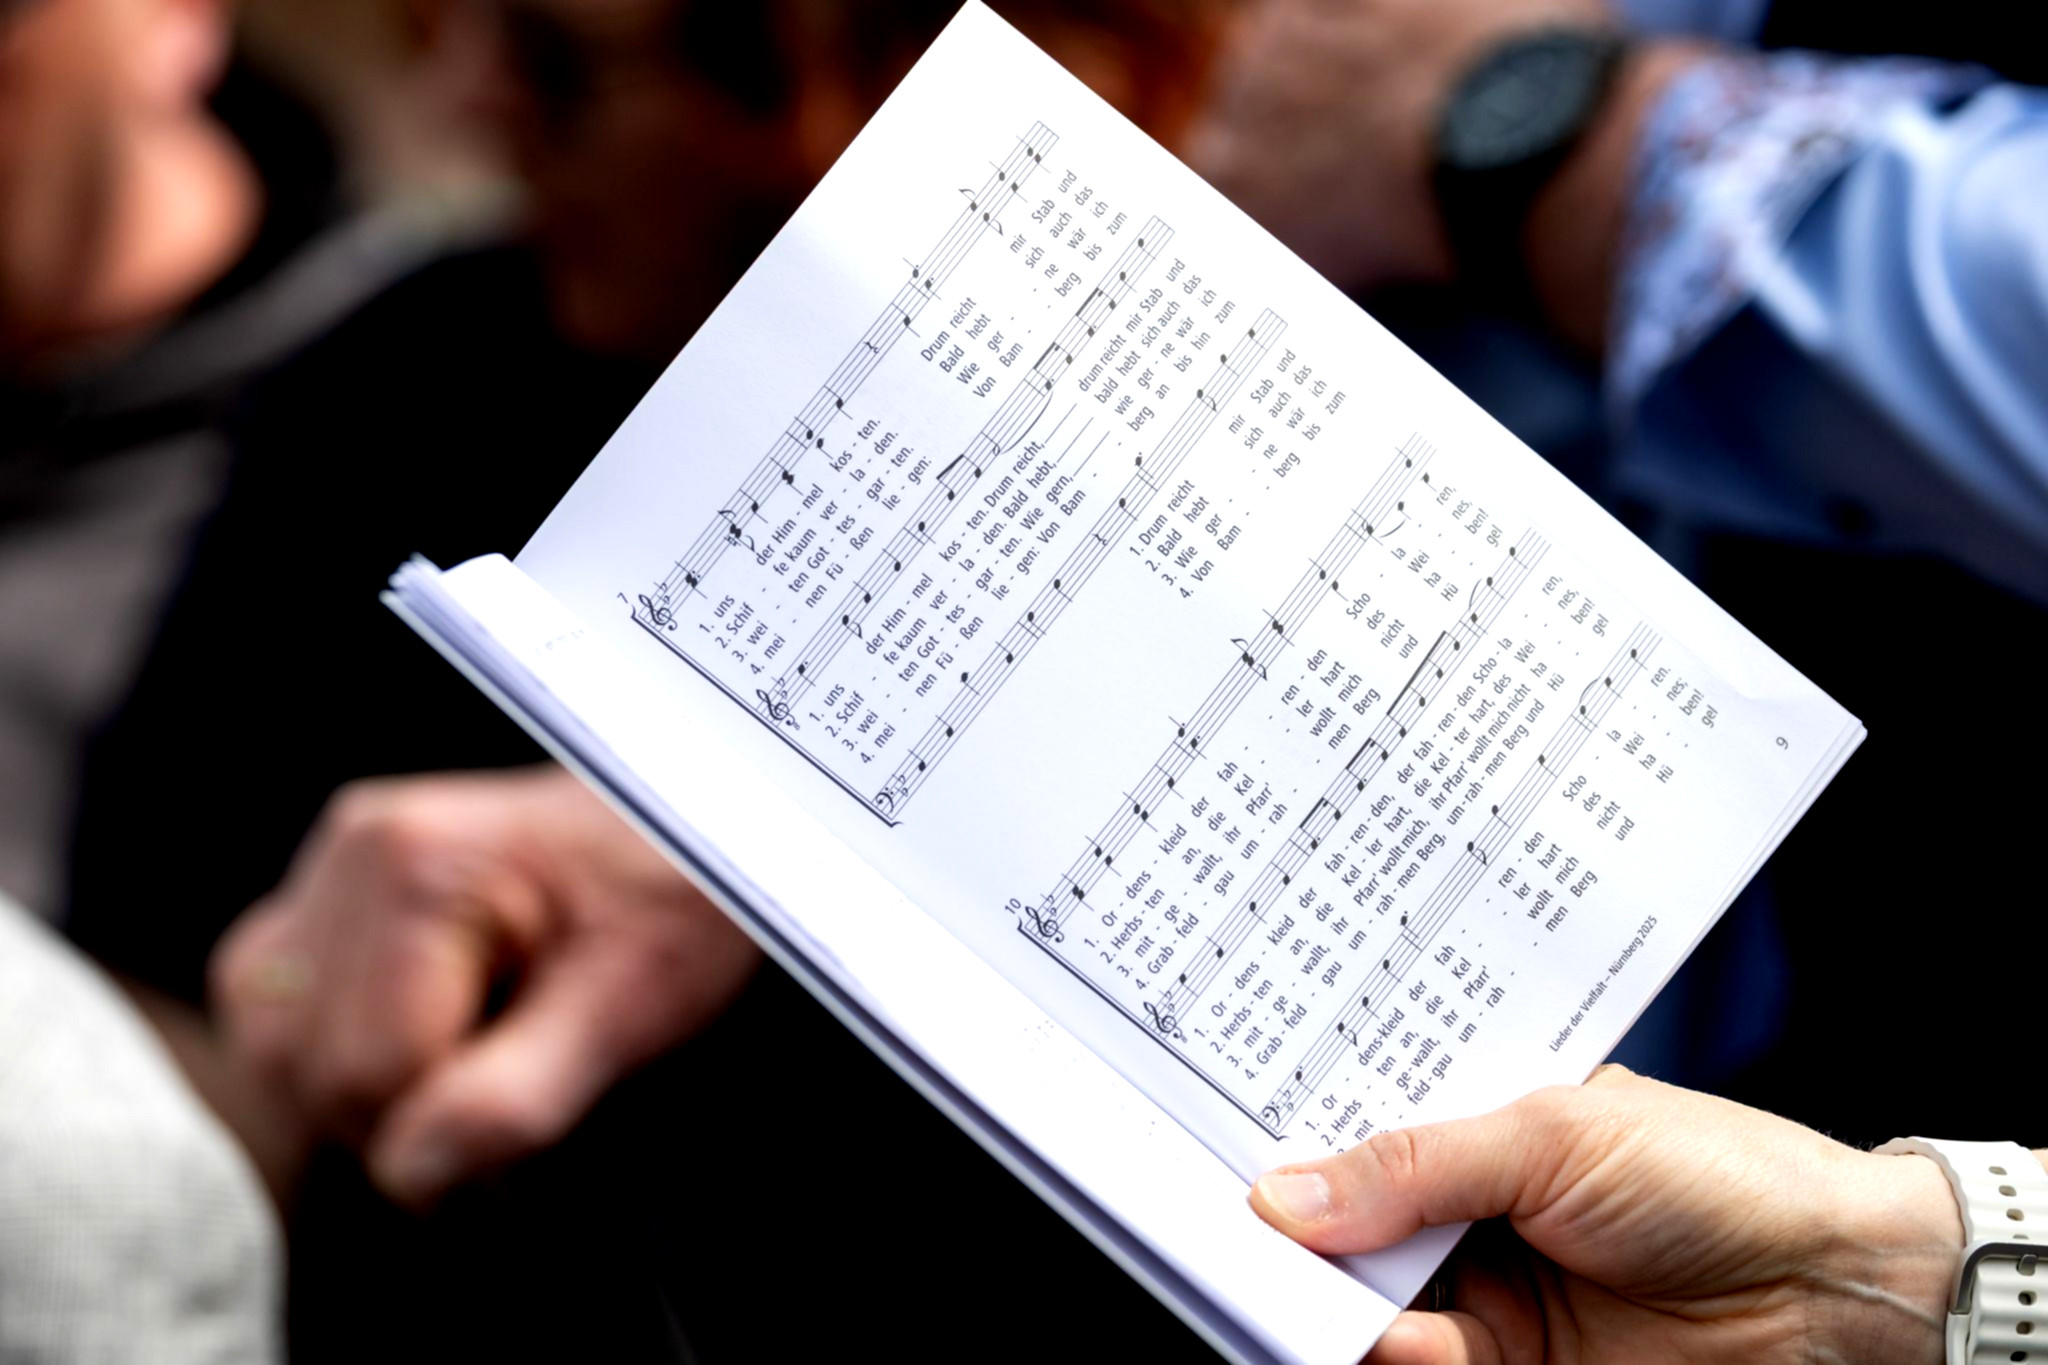 7
1. uns der Him - mel kos - ten. Drum reicht mir Stab und
2. Schif - fe kaum ver - la - den. Bald hebt sich auch das
3. wei - ten Got - tes - gar - ten. Wie ger - - ne wär ich
4. mei - nen Fü - ßen lie - gen: Von Bam - - berg bis zum
1. uns der Him - mel kos - ten. Drum reicht, drum reicht mir Stab und
2. Schif - fe kaum ver - la - den. Bald hebt, bald hebt sich auch das
3. wei - ten Got - tes - gar - ten. Wie gern, wie ger - ne wär ich
4. mei - nen Fü - ßen lie - gen: Von Bam - berg an bis hin zum
1. Drum reicht mir Stab und
2. Bald hebt sich auch das
3. Wie ger - - ne wär ich
4. Von Bam - - berg bis zum
10
1. Or - dens - kleid der fah - - ren - den Scho - la - ren,
2. Herbs - ten an, die Kel - - ler hart des Wei - nes,
3. mit - ge - wallt, ihr Pfarr' - wollt mich nicht ha - ben!
4. Grab - feld - gau um - rah - - men Berg und Hü - gel
1. Or - dens - kleid der fah - ren - den, der fah - ren - den Scho - la - ren,
2. Herbs - ten an, die Kel - ler hart, die Kel - ter hart, des Wei - nes,
3. mit - ge - wallt, ihr Pfarr' wollt mich, ihr Pfarr' wollt mich nicht ha - ben!
4. Grab - feld - gau um - rah - men Berg, um - rah - men Berg und Hü - gel
1. Or - dens-kleid der fah - - ren - den Scho - la - ren.
2. Herbs - ten an, die Kel - - ler hart des Wei - nes;
mit - ge-wallt, ihr Pfarr' - wollt mich nicht ha - ben!
- feld-gau um - rah - - men Berg und Hü - gel
Lieder der Vielfalt – Nürnberg 2025
9